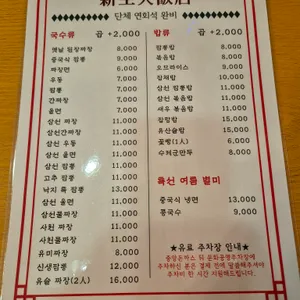 단체 연회석 완비
국수류 곱 +2,000
옛날 된장짜장 8,000
중국식 짜장 9,000
짜장면 6,000
우동 7,000
짬뽕 7,000
간짜장 7,000
울면 7,000
삼선 짜장 8,000
삼선간짜장 9,000
삼선 우동 9,000
삼선 울면 9,000
삼선 짬뽕 9,000
고추 짬뽕 9,000
낙지 특 짬뽕 13,000
삼선 울면 9,000
삼선물짜장 9,000
사천 짜장 9,000
사천물짜장 9,000
유미짜장 8,000
산생짬뽕 12,000
유슬 짜장(2人) 16,000
밥류 곱 +2,000
짬뽕밥 8,000
볶음밥 8,000
오므라이스 9,000
잡채밥 10,000
삼선 짬뽕밥 10,000
삼선 볶음밥 10,000
새우 볶음밥 10,000
잡탕밥 15,000
유산슬밥 15,000
꽃빵(1人) 6,000
수저군만두 8,000
특선 여름 별미
중국식 냉면 13,000
콩국수 9,000
★유료 주차장 안내★